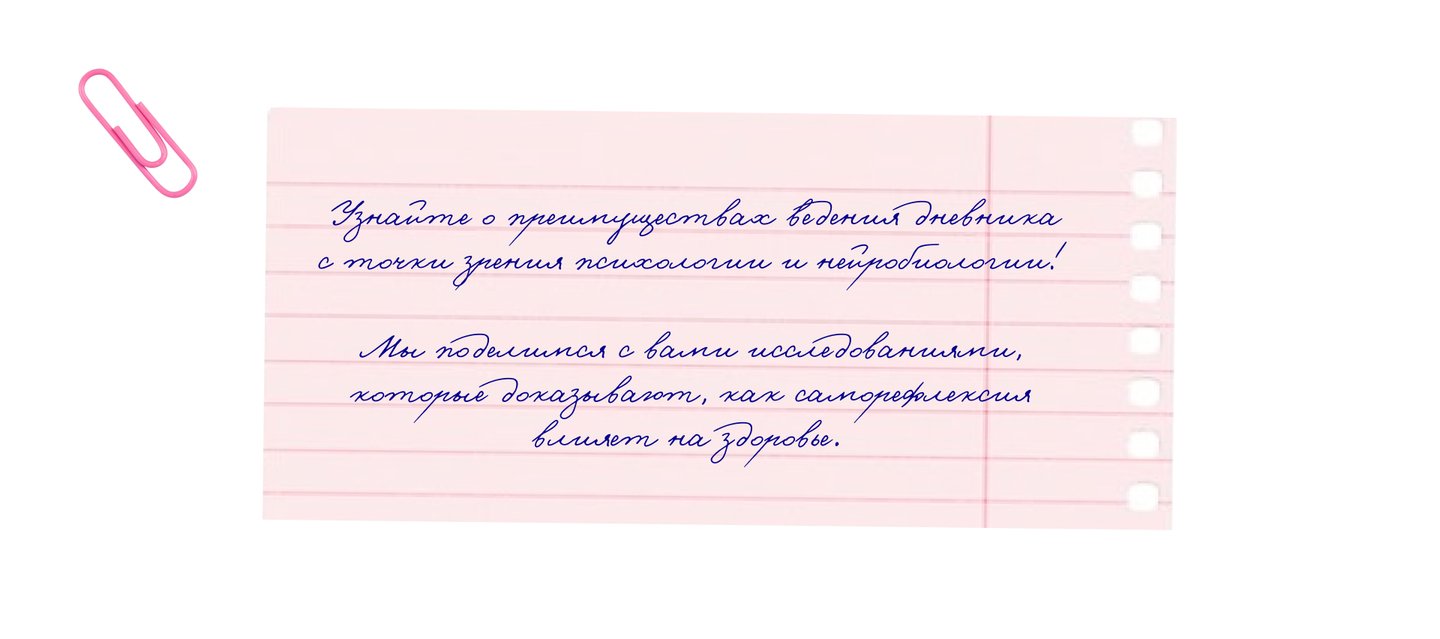 Узнайте о преимуществах ведения дневника
с точки зрения психологии и нейробиологии!
Мы поделимся с вами исследованиями,
которые доказывают, как саморефлексия
влияет на здоровье.